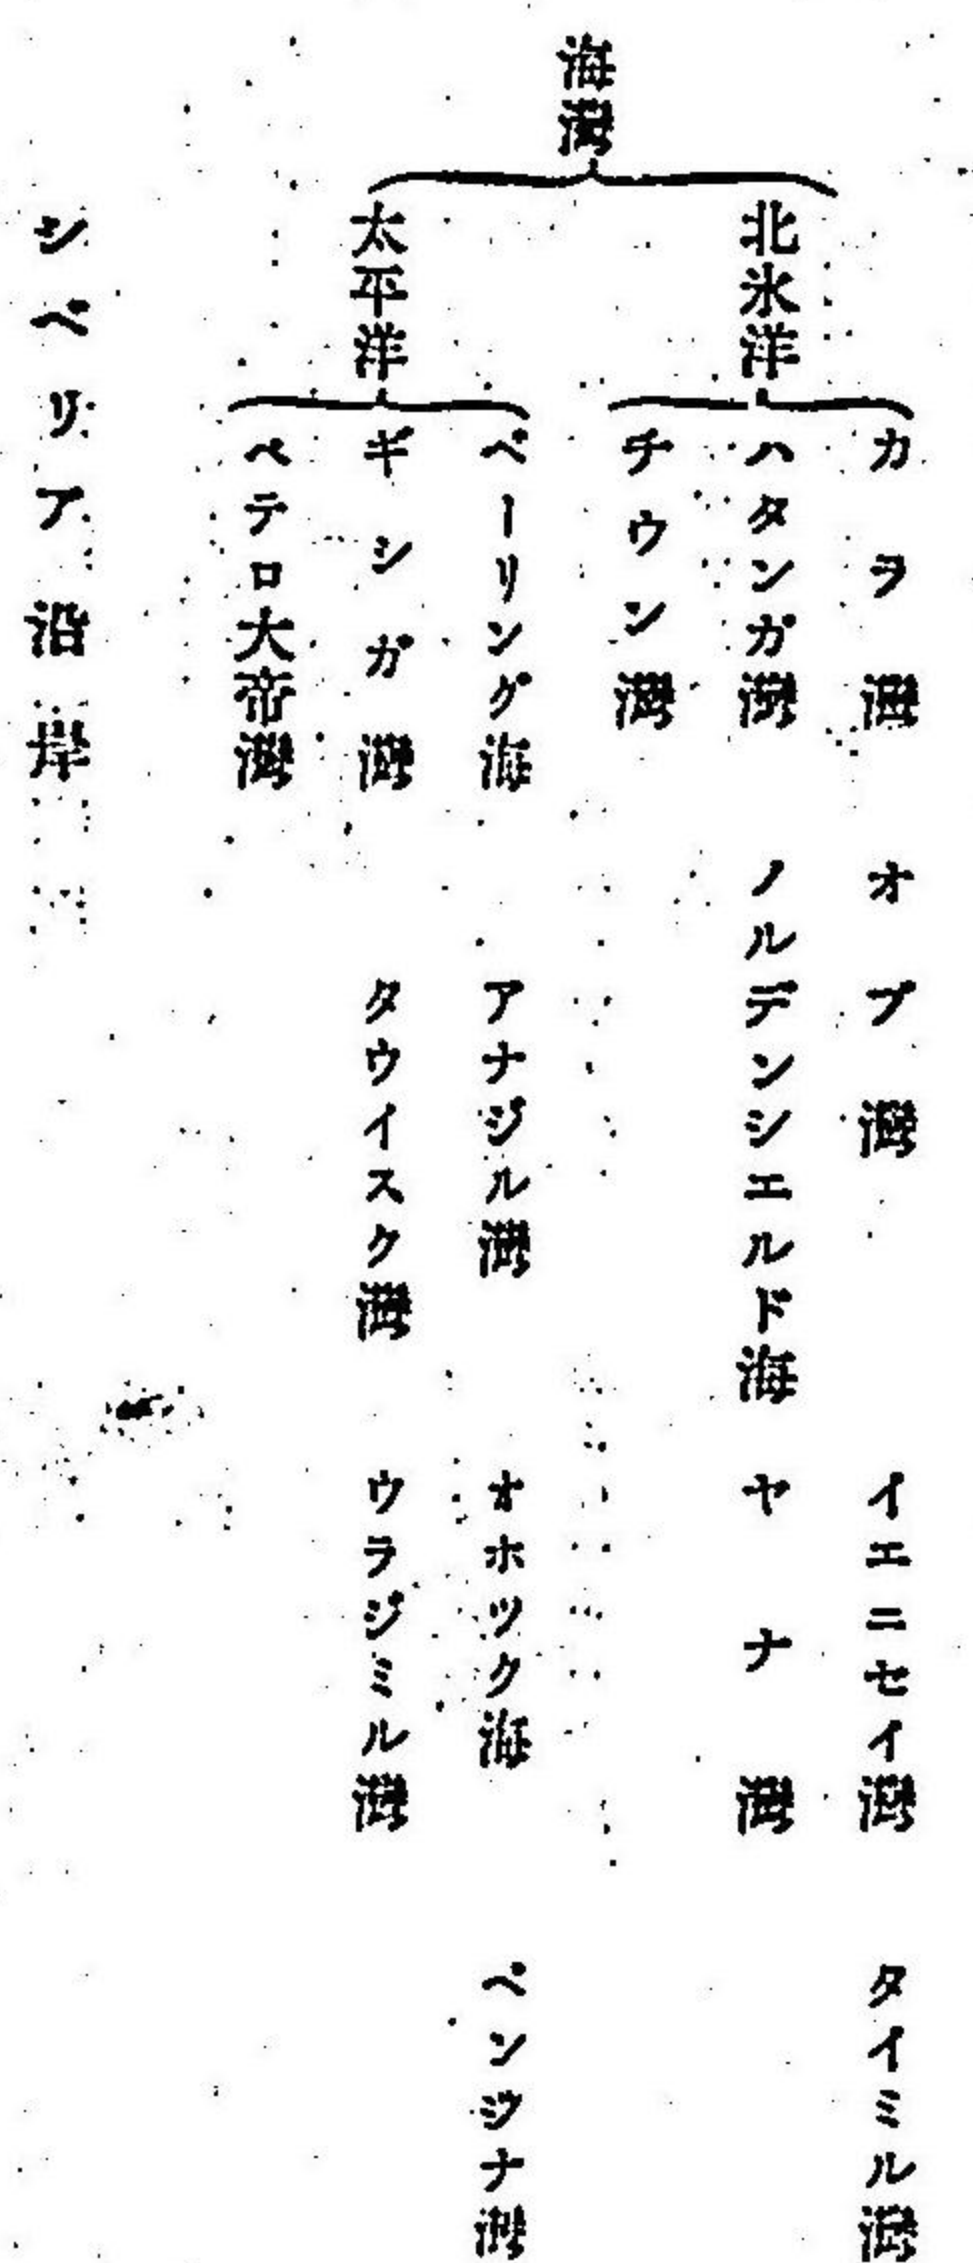 海灣
北氷洋
カラ灣 オブ灣 イエニセイ灣 タイミル灣
ハタンガ灣 ノルデンシエルド海 ヤナ灣
チウン灣
太平洋
ベーリング海 アナジル灣 オホツク海 ペンジナ灣
ギシガ灣 タウイスク灣 ウラジミル灣
ペテロ大帝灣
シベリア沿岸